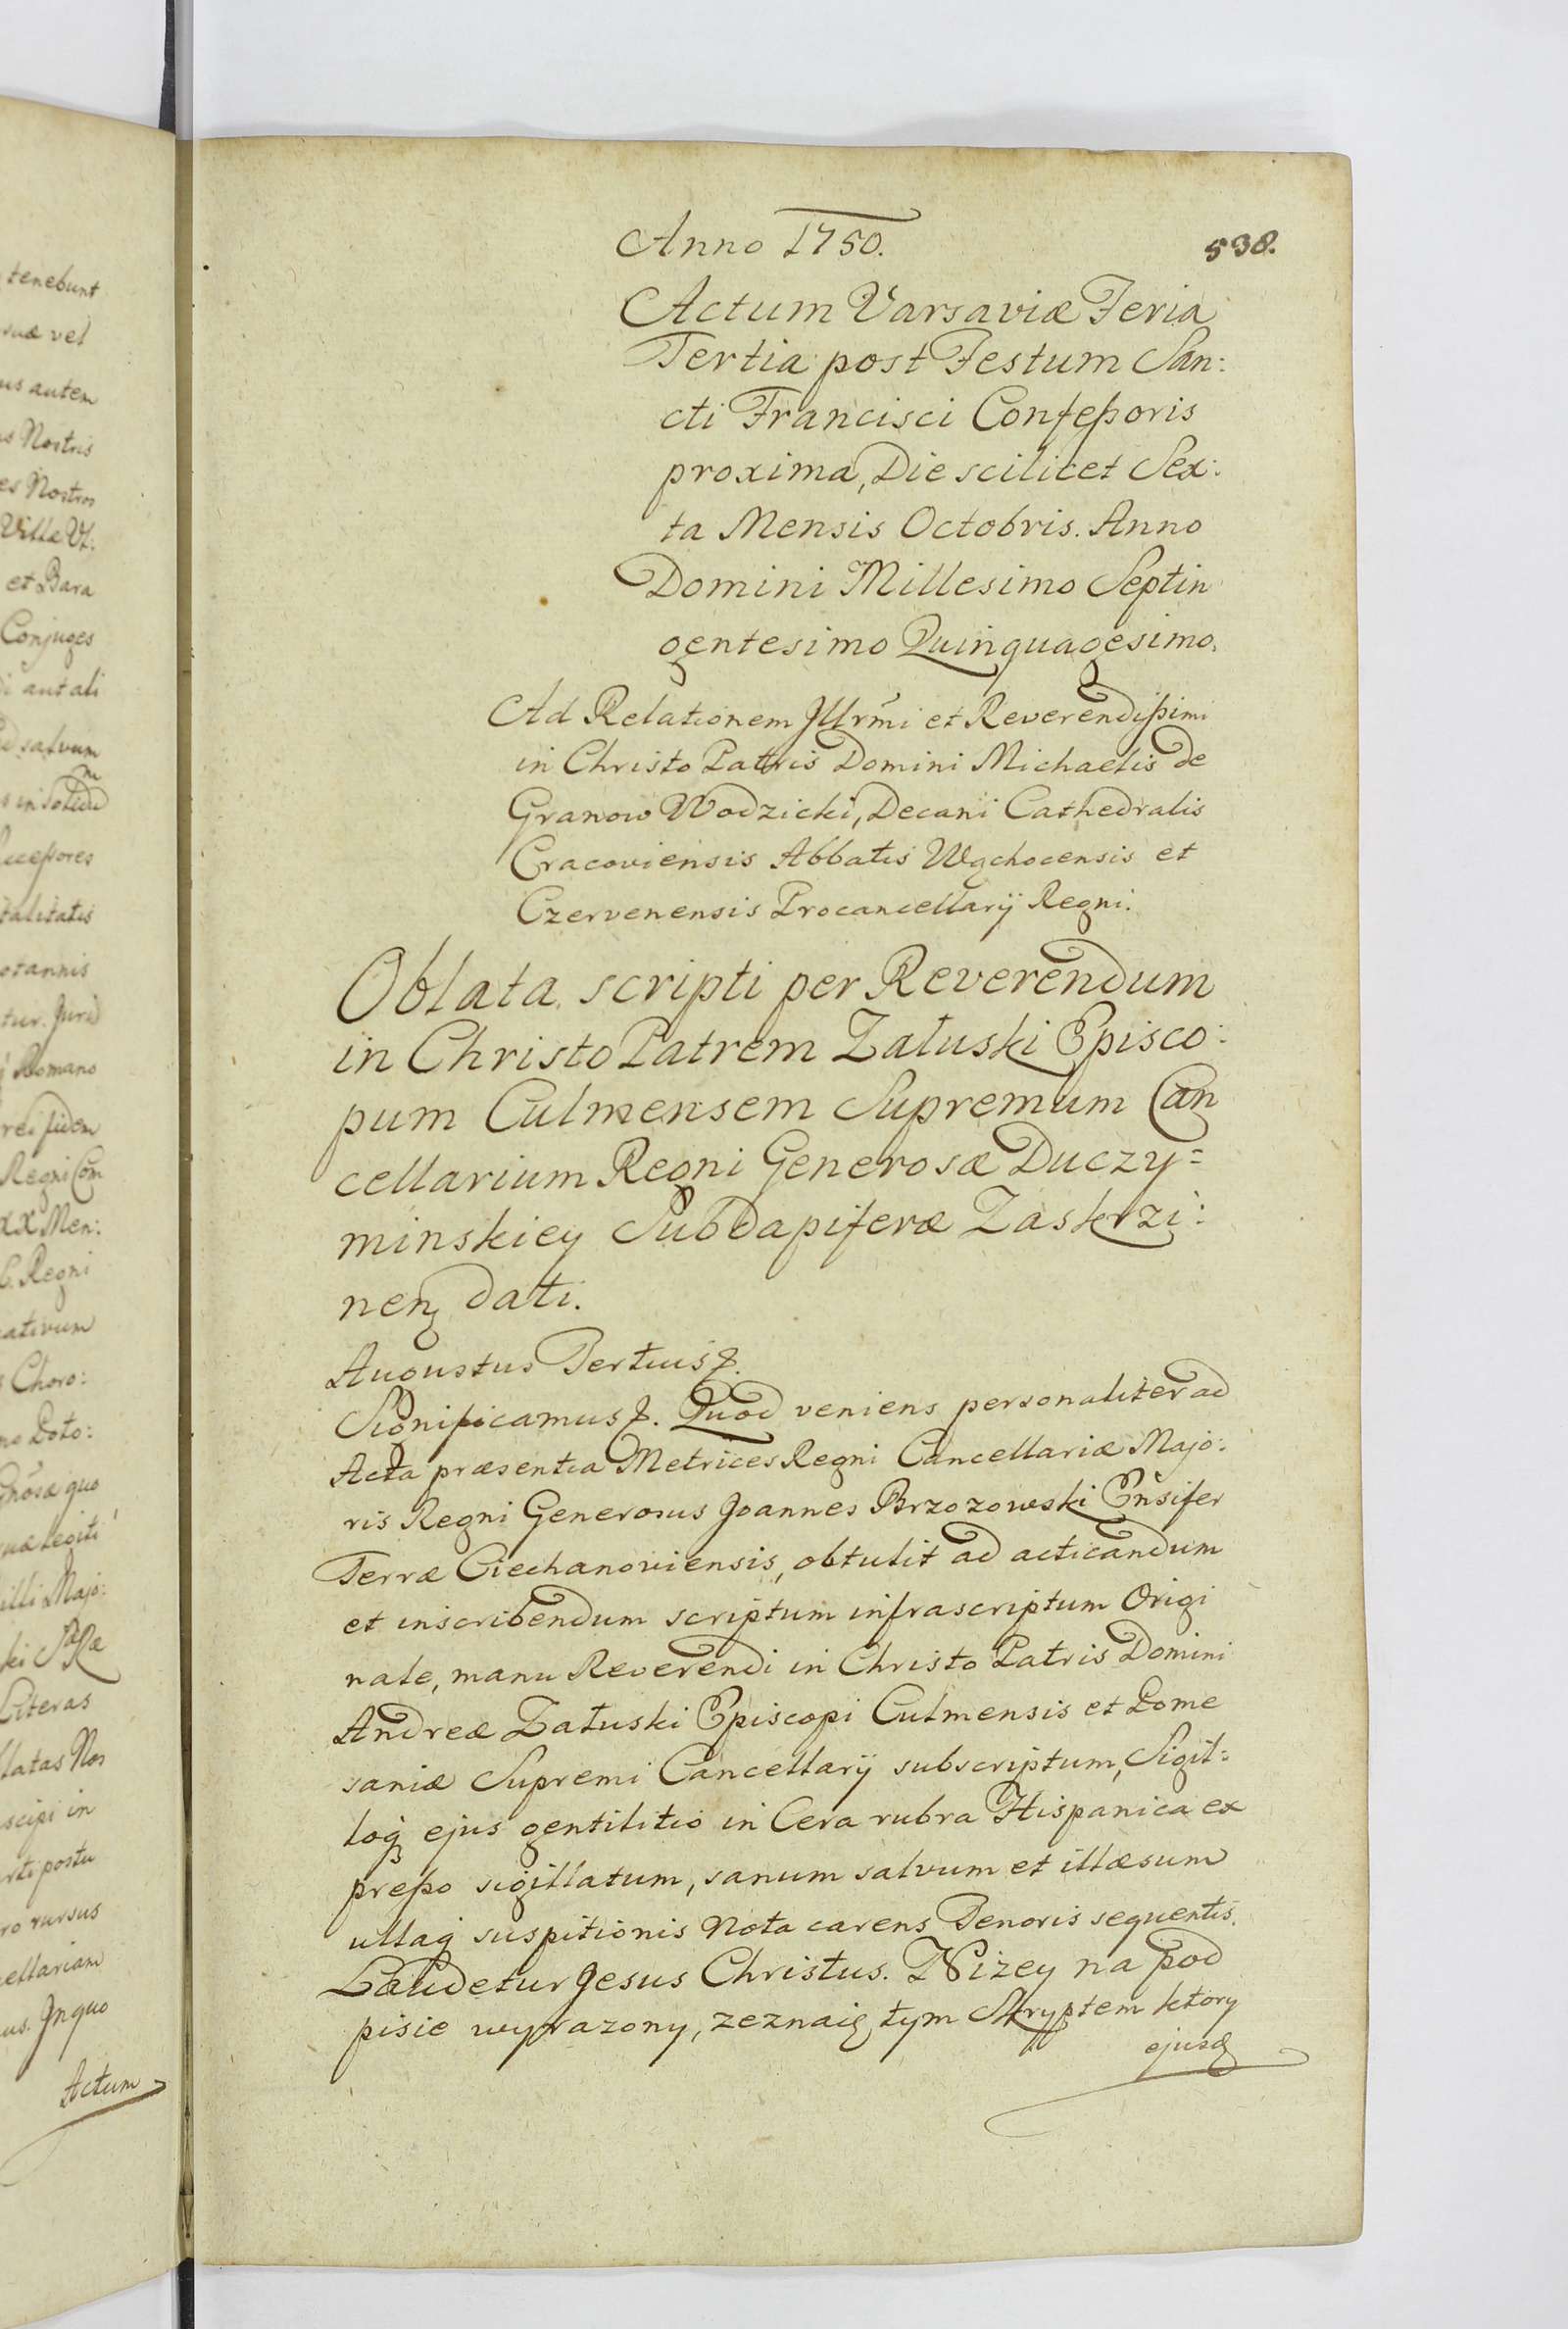 tenebunt
suæ vel
us autem
s Nostris
es Nostros
Villa
et Bara
Conjuges
aut ali
salvum
in solidū
uccessores
talitatis
otannis
tur. Jurid
Romano
rei fidem
Regni Com
XX Men:
C. Regni
cativum
Choro:
no Poto:
quo
quæ legiti
illi Majo:
ki
Literas
latas Nos
scipi in
rti postu
ro rursus
cellariam
us. In quo
Actum
Anno 1750.
538.
Actum Varsaviæ Feria
Tertia post Festum San:
cti Francisci Confeßoris
proxima, Die scilicet Sex:
ta Mensis Octobris. Anno
Domini Millesimo Septin
gentesimo Quinquagesimo.
Ad Relationem Illrm̄i et Reverendißimi
in Christo Patris Domini Michaelis de
Granow Wodzicki, Decani Cathedralis
Cracoviensis Abbatis Wąchocensis et
Czervenensis Procancellarÿ Regni.
Oblata scripti per Reverendum
in Christo Patrem Załuski Episco:
pum Culmensem Supremum Can
cellarium Regni Generosæ Duczy=
minskiey Subdapiferæ Zaskrzi:
nen̄ dati.
Augustus Tertius &.
Significamus &. Quod veniens personaliter ad
Acta præsentia Metrices Regni Cancellariæ Majo:
ris Regni Generosus Joannes Brzozowski Ensifer
Terræ Ciechanoviensis, obtulit ad acticandum
et inscribendum scriptum infrascriptum Origi
nale, manu Reverendi in Christo Patris Domini
Andreæ Załuski Episcopi Culmensis et Pome
saniæ Supremi Cancellarÿ subscriptum, Sigil=
loq̢ ejus gentilitio in Cera rubra Hispanica ex
preßo sigillatum, sanum salvum et illæsum
ullaq̢ suspitionis Nota carens Tenoris sequentis.
Laudetur Jesus Christus. Nizey na pod
pisie wyrazony, zeznaię tym Skryptem ktory
ejusd